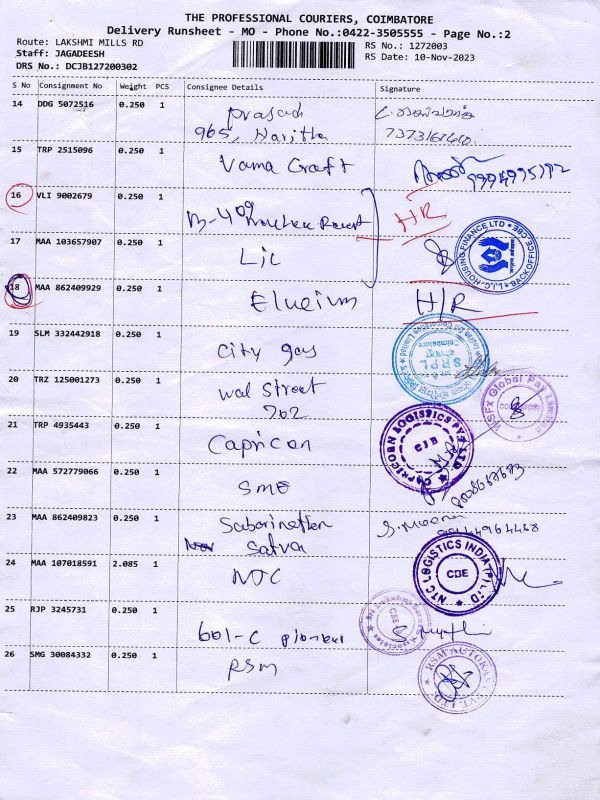 THE PROFESSIONAL COURIERS, COIMBATORE
Delivery Runsheet - MO - Phone No.:0422-3505555 - Page No.:2
Route: LAKSHMI MILLS RD
Staff: JAGADEESH
DRS No.: DCJB127200302
RS No.: 1272003
RS Date: 10-Nov-2023
S No Consignment No Weight PCS Consignee Details Signature
14 DDG 5072516 0.250 1 Prasad
965, Haritha
15 TRP 2515096 0.250 1 Vama Craft 9994995192
16 VLI 9002679 0.250 1 B-409 H/R
17 MAA 103657907 0.250 1 Lic
L.I.C. HOUSING FINANCE LTD BACK OFFICE CBE
18 MAA 862409929 0.250 1 H/R
19 SLM 332442918 0.250 1 City gas
SRPL
Coimbatore
20 TRZ 125001273 0.250 1 Wal Street
702
21 TRP 4935443 0.250 1 Capricon
CAPRICORN LOGISTICS PVT LTD
CJB
22 MAA 572779066 0.250 1 SME
23 MAA 862409823 0.250 1 Sabarinathan
Satva
24 MAA 107018591 2.085 1 NTC
NTC LOGISTICS INDIA (P) LTD
CBE
25 RJP 3245731 0.250 1 601-C pioneer
26 SMG 30084332 0.250 1 RSM
RSM AUTOKAST PVT. LTD.